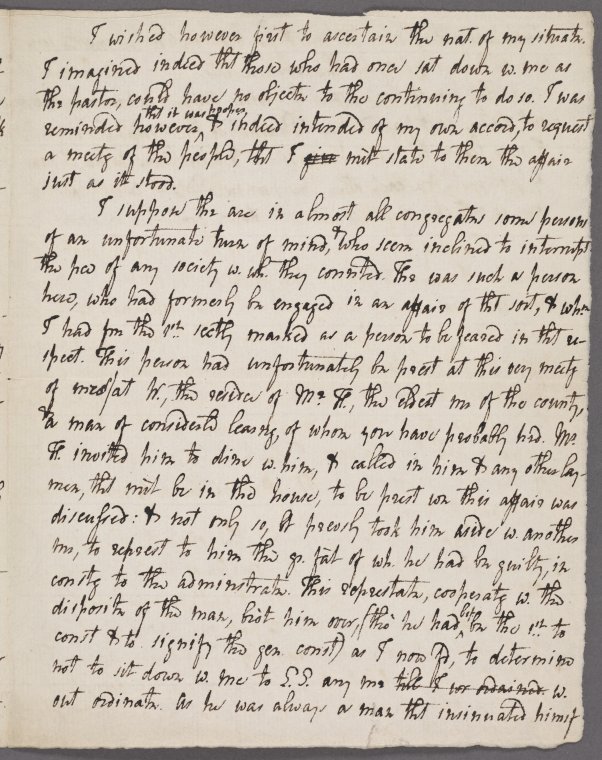 I wished however first to ascertain the nat. of my situatn.
I imagined indeed tht those who had once sat down w. me as
the pastor, could have no objectn to the continuing to do so. I was
that it was proper
reminded however, & indeed intended of my own accord, to request
a meetg of the people, tht I give mit state to them the affair
just as it stood.
I suppose the are in almost all congregatns some persons
of an unfortunate turn of mind, & who seem inclined to interrupt
the pce of any society w. wh. they connected. The was such a person
here, who had formerly bn engaged in an affair of tht sort, & whm
I had fm the 1st sectly marked as a person to be feared in tht re-
spect. This person had unfortunately bn prest at this very meetg
of at W., the reside of Mr. H., the eldest mr of the county,
& a man of considerle learng, of whom you have probably hrd. Mr.
H. invited him to dine w. him, & called in him & any other lay-
men, tht mit be in the house, to be prest wn this affair was
discussed: & not only so, bt prevsly took him aside w. another
mr, to represt to him the gr. fát of wh. he had bn guilty, in
constg to the adminstratn. This represtatn, cooperatg w. the
dispositn of the man, brót him over, (tho' he had bn the 1st to
const & to signify the gen. const) as I now fd, to determine
not to sit down w. me to L.S. any mre till I wr ordained w.
out ordinatn. As he was always a man tht insinuated himsf